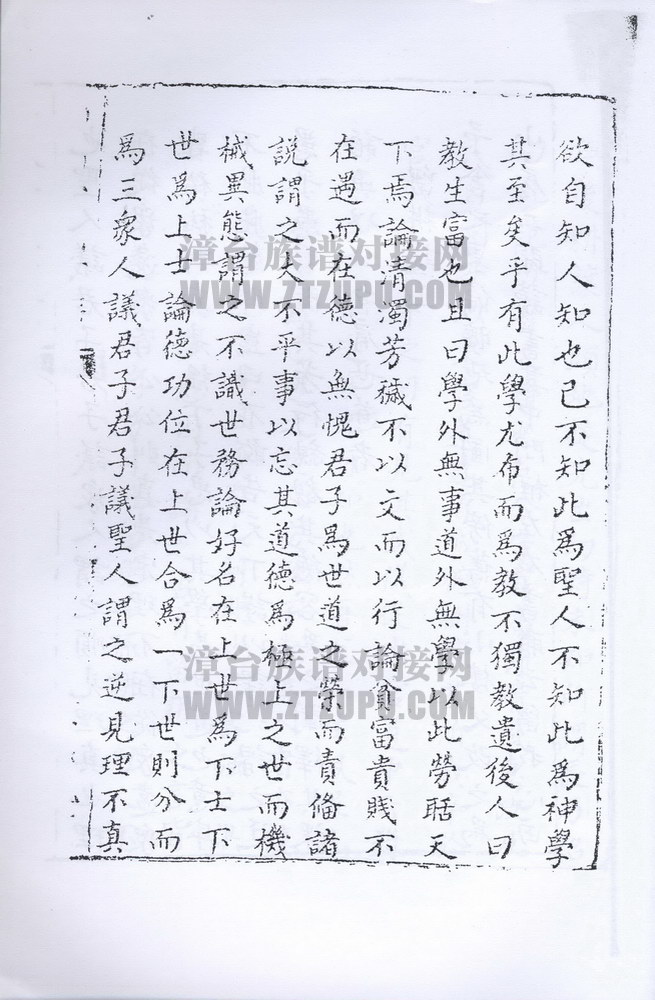 欲自知人知也己不知此為聖人不知此為神學
其至矣乎有此學尤布而為教不獨教遺後人曰
教生富也且曰學外無事道外無學以此勞聒天
下焉論清濁芳穢不以文而以行論貧富貴賤不
在遇而在德以無愧君子為世道之榮而責備諸
說謂之大不平事以忘其道德為極上之世而機
械異態謂之不識世務論好名在上世為下士下
世為上士論德功位在上世合為一下世則分而
為三眾人議君子君子議聖人謂之逆見理不真
漳台族谱对接网
WWW.ZTZUPU.COM
漳台族谱对接网
WWW.ZTZUPU.COM